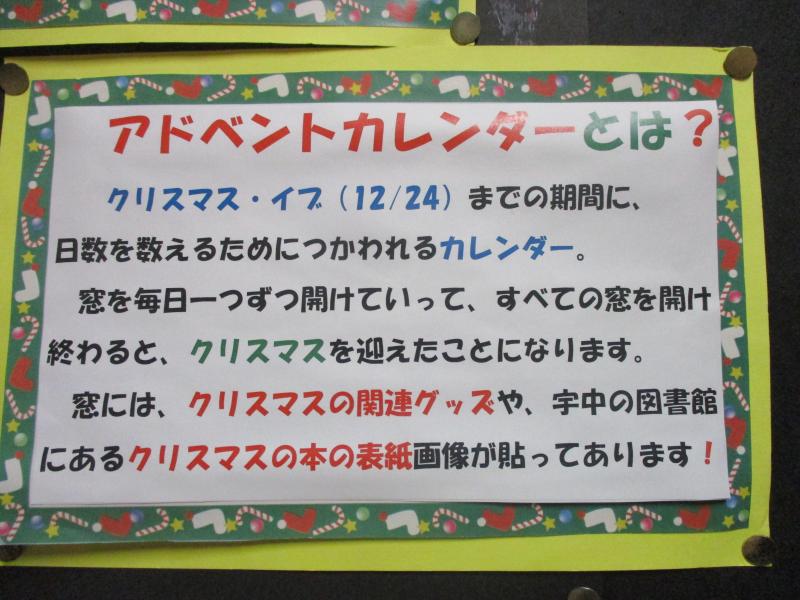 アドベントカレンダーとは？
クリスマス・イブ（12/24）までの期間に、
日数を数えるためにつかわれるカレンダー。
窓を毎日一つずつ開けていって、すべての窓を開け
終わると、クリスマスを迎えたことになります。
窓には、クリスマスの関連グッズや、宇中の図書館
にあるクリスマスの本の表紙画像が貼ってあります！